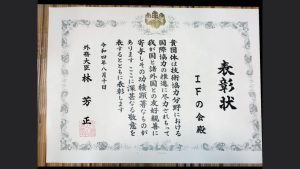 表彰状
IFの会殿
貴団体は技術協力分野における
国際協力の推進に尽力されもって
我が国と諸外国との友好親善に
寄与しその功績顕著なものが
あります ここに深甚なる敬意を
表するとともに表彰します
令和四年八月十日
外務大臣 林芳正